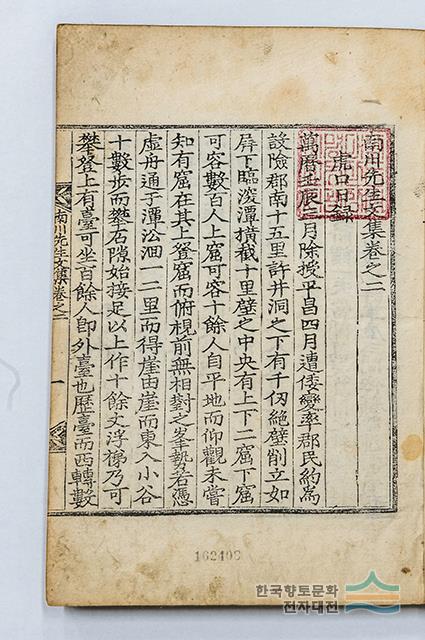 南川先生文集卷之二
虎口日錄
萬曆壬辰二月除授平昌四月遭倭變率郡民約爲
設險郡南十五里許井洞之下有千仞絶壁削立如
屛下臨深潭橫截十里壁之中央有上下二窟下窟
可容數百人上窟可容十餘人自平地而仰觀未嘗
知有窟在其上登窟而俯視前無相對之峯勢若憑
虛舟通于潭㳂洄一二里而得崖由崖而東入小谷
十數步而攀石隙始接足以上作十餘丈浮梯乃可
攀登上有臺可坐百餘人卽外臺也歷臺而西轉數
南川先生文集卷之二 一
한국향토문화
전자대전